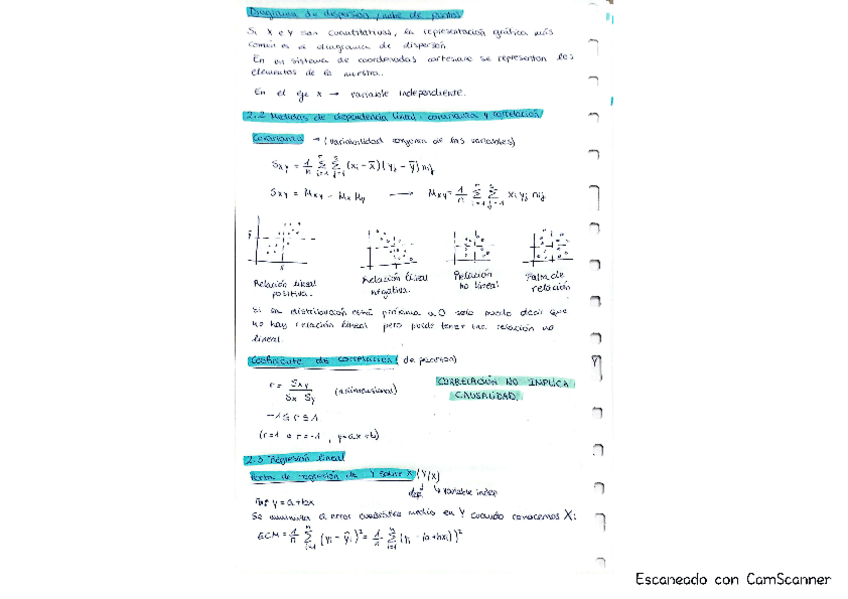 Diagrama de dispersión / nube de puntos
Si X e Y son cuantitativas, la representación gráfica más
común es el diagrama de dispersión
En un sistema de coordenadas cartesiano se representan los
elementos de la muestra.
En el eje x → variable independiente.
2.2 Medidas de dependencia lineal: covarianza y correlación
Covarianza → (variabilidad conjunta de las variables)
Sxy = 1/n Σ Σ (xi - x̄)(yj - ȳ) nij
Sxy = Mxy - Mx My → Mxy = 1/n Σ Σ xi yj nij
Relación lineal positiva.
Relación lineal negativa.
Relación no lineal
Falta de relación
Si la distribución está próxima a 0 solo puedo decir que
no hay relación lineal pero puede tener una relación no
lineal.
Coeficiente de correlación (de pearson)
r = Sxy / Sx Sy (adimensional)
CORRELACIÓN NO IMPLICA
CAUSALIDAD.
-1 ≤ r ≤ 1
(r=1 o r=-1, y=ax+b)
2.3 Regresión lineal
Rectas de regresión de Y sobre X (Y/X)
dep. variable indep
y = a+bx
Se minimiza el error cuadrático medio en Y cuando conocemos X:
ECM = 1/n Σ (yi - ŷi)² = 1/n Σ (yi - (a+bxi))²
Escaneado con CamScanner